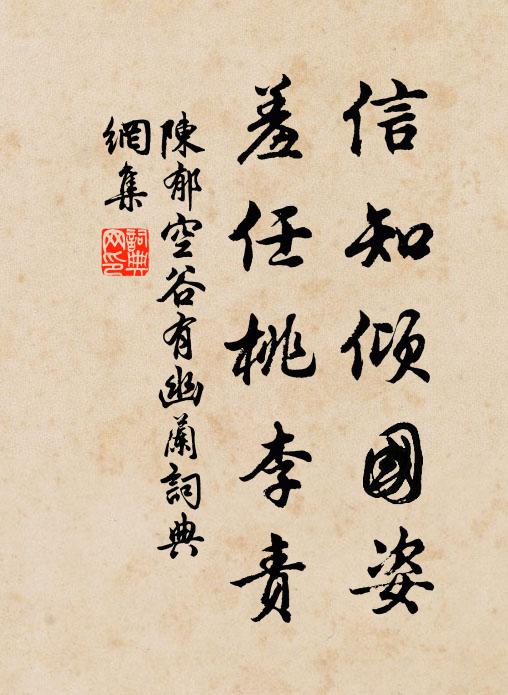 信知傾國姿
羞任桃李責
陳郁空谷有幽蘭詞典
網集
詞典網印